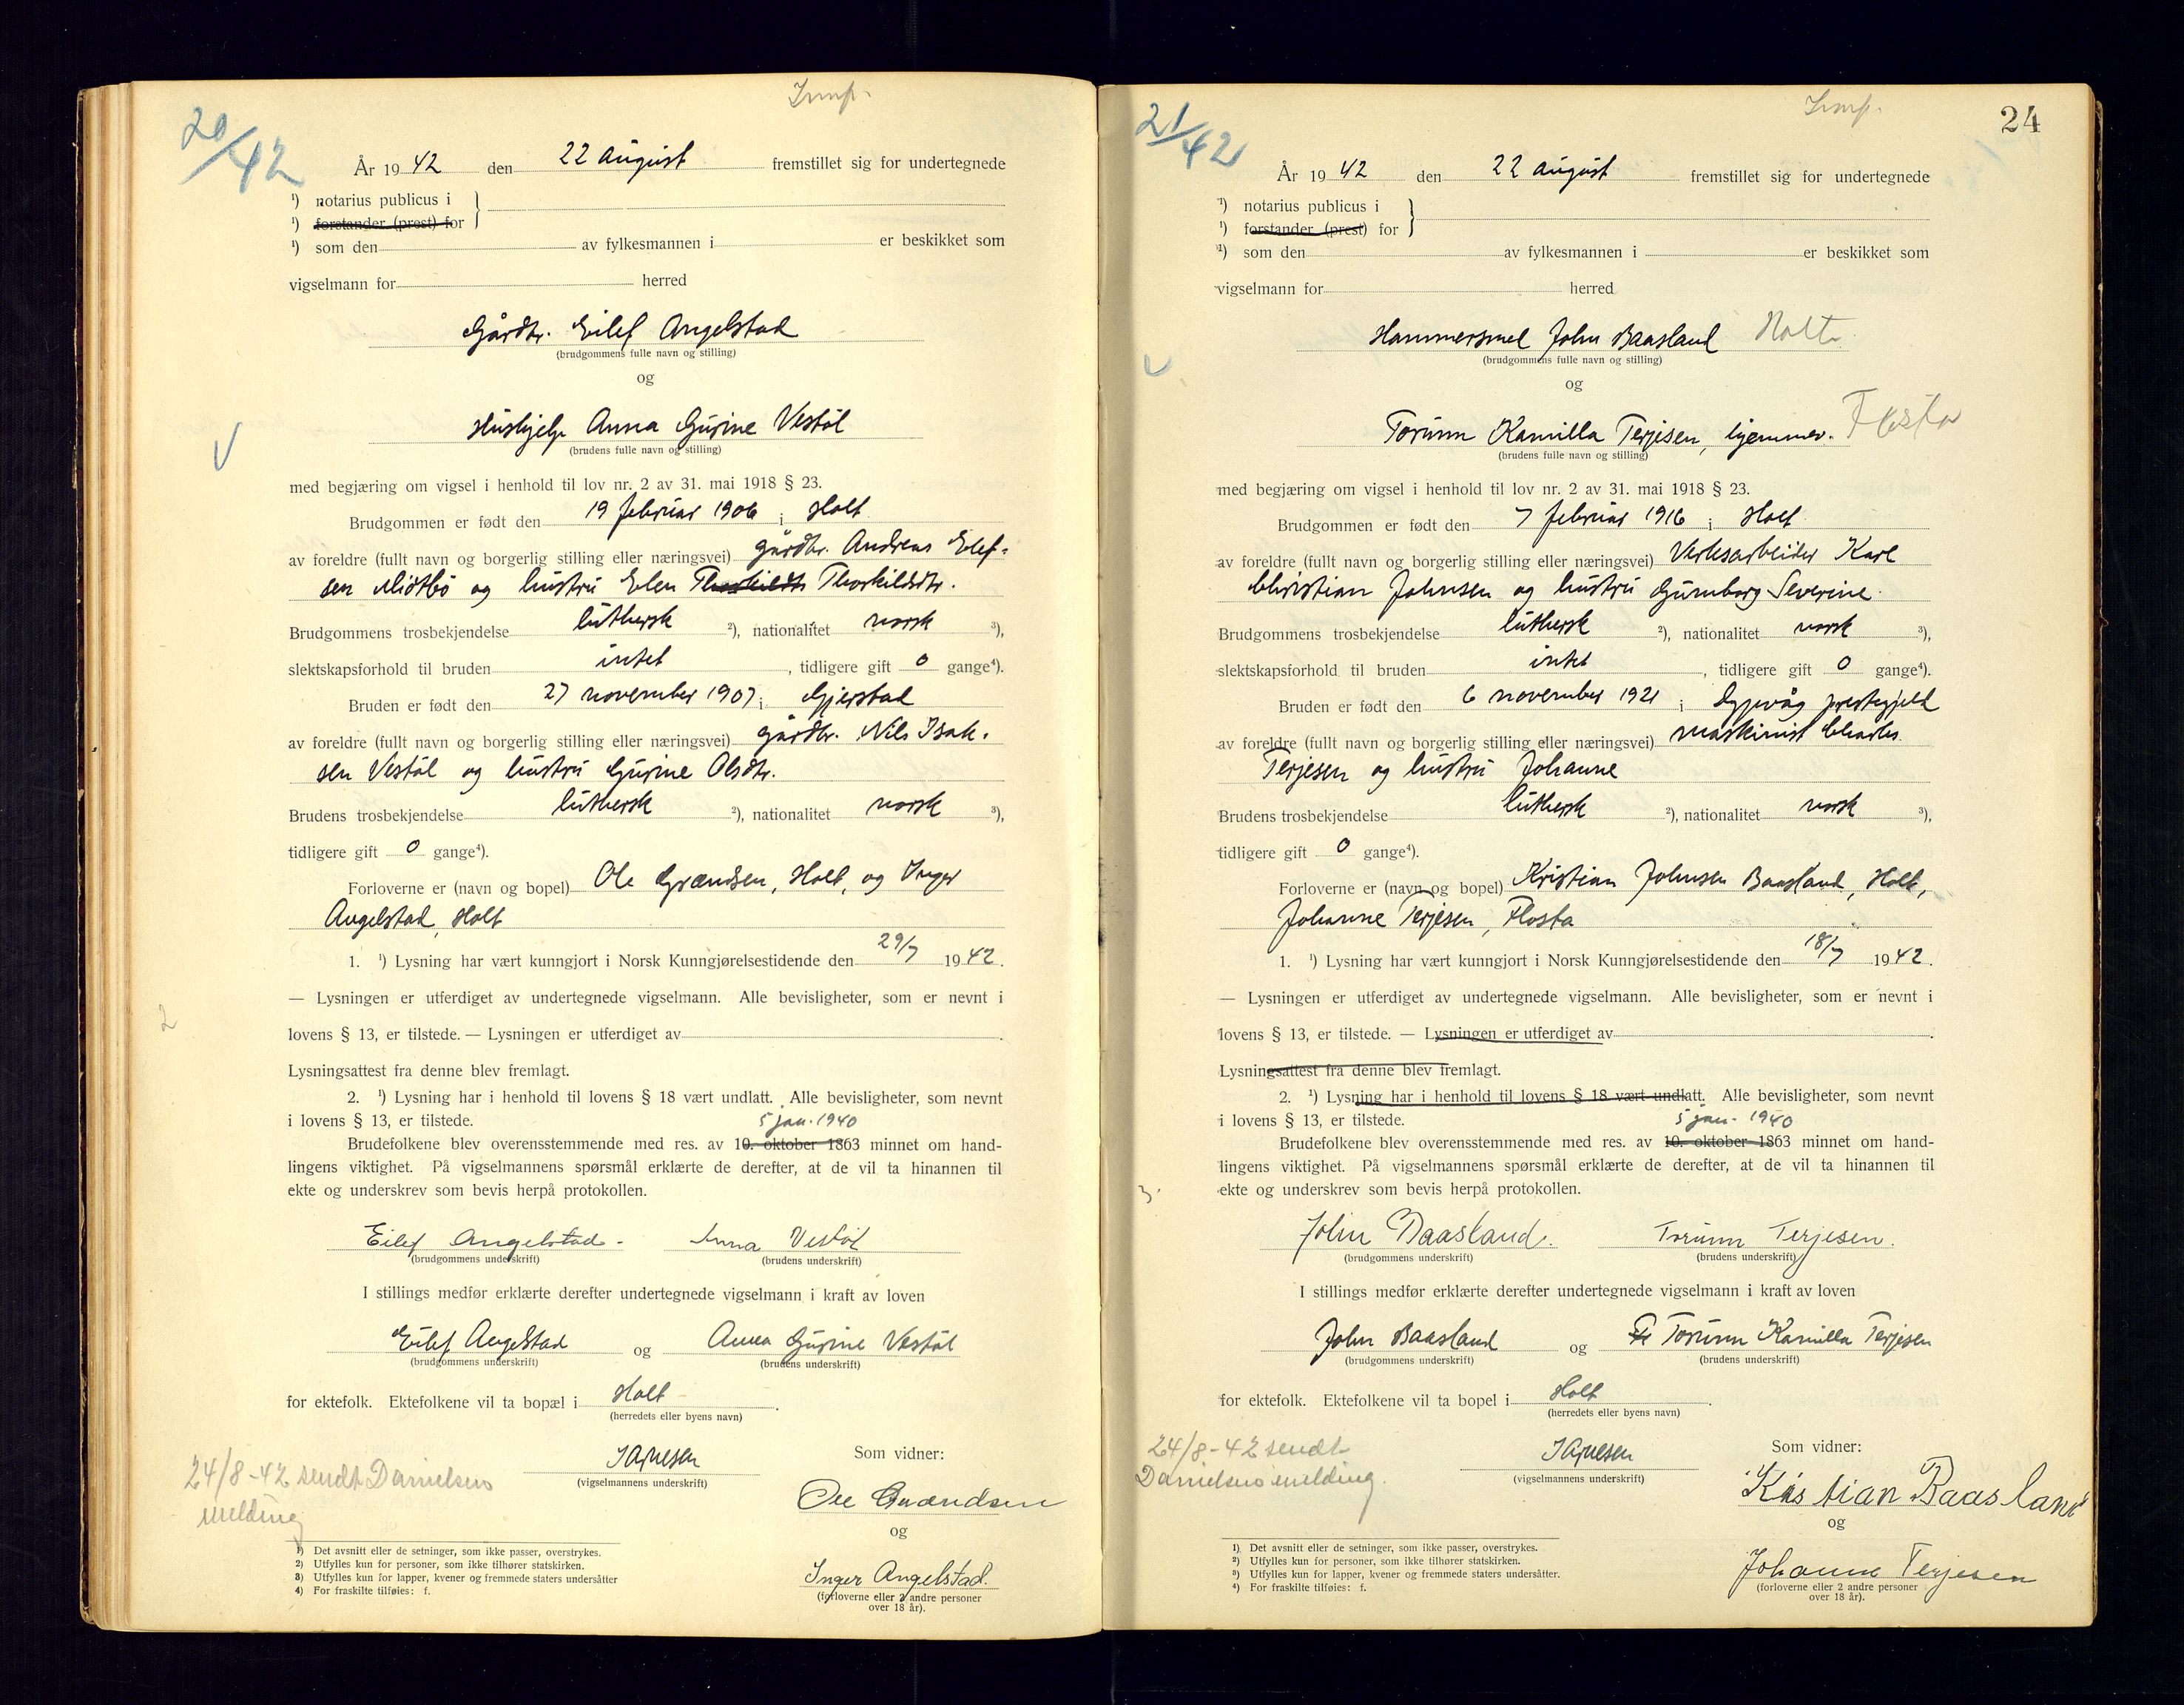 20/42
År 1942 den 22 august fremstillet sig for undertegnede
¹) notarius publicus i
¹) forstander (prest) for
¹) som den av fylkesmannen i er beskikket som
vigselmann for herred
Gårdbr. Eilef Angelstad
(brudgommens fulle navn og stilling)
og
Hushjelp Anna Gurine Vestøl
(brudens fulle navn og stilling)
med begjæring om vigsel i henhold til lov nr. 2 av 31. mai 1918 § 23.
Brudgommen er født den 19 februar 1906 i Holt
av foreldre (fullt navn og borgerlig stilling eller næringsvei) gårdbr. Andreas Elef-
sen Midtbø og hustru Elen Thorkildtr Thorkildsdtr.
Brudgommens trosbekjendelse luthersk ²), nationalitet norsk ³),
slektskapsforhold til bruden intet, tidligere gift 0 gange⁴).
Bruden er født den 27 november 1907 i Gjerstad
av foreldre (fullt navn og borgerlig stilling eller næringsvei) gårdbr. Nils Isak-
sen Vestøl og hustru Gurine Olsdtr.
Brudens trosbekjendelse luthersk ²), nationalitet norsk ³),
tidligere gift 0 gange⁴).
Forloverne er (navn og bopel) Ole Grændsen, Holt, og Inger
Angelstad, Holt
1. ¹) Lysning har vært kunngjort i Norsk Kunngjørelsestidende den 29/7 1942.
— Lysningen er utferdiget av undertegnede vigselmann. Alle bevisligheter, som er nevnt i
2
lovens § 13, er tilstede. — Lysningen er utferdiget av
Lysningsattest fra denne blev fremlagt.
2. ¹) Lysning har i henhold til lovens § 18 vært undlatt. Alle bevisligheter, som nevnt
i lovens § 13, er tilstede.
5 jan. 1940
Brudefolkene blev overensstemmende med res. av 10. oktober 1863 minnet om hand-
lingens viktighet. På vigselmannens spørsmål erklærte de derefter, at de vil ta hinannen til
ekte og underskrev som bevis herpå protokollen.
Eilef Angelstad - Anna Vestøl
(brudgommens underskrift) (brudens underskrift)
I stillings medfør erklærte derefter undertegnede vigselmann i kraft av loven
Eilef Angelstad og Anna Gurine Vestøl
(brudgommens underskrift) (brudens underskrift)
for ektefolk. Ektefolkene vil ta bopæl i Holt.
(herredets eller byens navn)
Som vidner:
(vigselmannens underskrift)
24/8-42 sendt Danielsens
melding
Ole Grændsen
og
Inger Angelstad.
(forloverne eller 2 andre personer
over 18 år).
1) Det avsnitt eller de setninger, som ikke passer, overstrykes.
2) Utfylles kun for personer, som ikke tilhører statskirken.
3) Utfylles kun for lapper, kvener og fremmede staters undersåtter
4) For fraskilte tilføies: f.
21/42
24
År 1942 den 22 august fremstillet sig for undertegnede
¹) notarius publicus i
¹) forstander (prest) for
¹) som den av fylkesmannen i er beskikket som
vigselmann for herred
Hammersmed John Baasland Holt
(brudgommens fulle navn og stilling)
og
Torunn Kamilla Terjesen, hjemmev. Flosta
(brudens fulle navn og stilling)
med begjæring om vigsel i henhold til lov nr. 2 av 31. mai 1918 § 23.
Brudgommen er født den 7 februar 1916 i Holt
av foreldre (fullt navn og borgerlig stilling eller næringsvei) Verksarbeider Karl
Christian Johnsen og hustru Gunborg Severine.
Brudgommens trosbekjendelse luthersk ²), nationalitet norsk ³),
slektskapsforhold til bruden intet, tidligere gift 0 gange⁴).
Bruden er født den 6 november 1921 i Dypvåg prestegjeld
av foreldre (fullt navn og borgerlig stilling eller næringsvei) maskinist Charles
Terjesen og hustru Johanne
Brudens trosbekjendelse luthersk ²), nationalitet norsk ³),
tidligere gift 0 gange⁴).
Forloverne er (navn og bopel) Kristian Johnsen Baasland, Holt,
Johanne Terjesen, Flosta
1. ¹) Lysning har vært kunngjort i Norsk Kunngjørelsestidende den 18/7 1942.
— Lysningen er utferdiget av undertegnede vigselmann. Alle bevisligheter, som er nevnt i
lovens § 13, er tilstede. — Lysningen er utferdiget av
Lysningsattest fra denne blev fremlagt.
2. ¹) Lysning har i henhold til lovens § 18 vært undlatt. Alle bevisligheter, som nevnt
i lovens § 13, er tilstede.
5 jan. 1940
Brudefolkene blev overensstemmende med res. av 10. oktober 1863 minnet om hand-
lingens viktighet. På vigselmannens spørsmål erklærte de derefter, at de vil ta hinannen til
3.
ekte og underskrev som bevis herpå protokollen.
John Baasland. Torunn Terjesen.
(brudgommens underskrift) (brudens underskrift)
I stillings medfør erklærte derefter undertegnede vigselmann i kraft av loven
John Baasland og Torunn Kamilla Terjesen
(brudgommens underskrift) (brudens underskrift)
for ektefolk. Ektefolkene vil ta bopel i Holt.
(herredets eller byens navn)
Som vidner:
(vigselmannens underskrift)
24/8-42 sendt
Danielsens melding.
Kristian Baasland
og
Johanne Terjesen
(forloverne eller 2 andre personer
over 18 år).
1) Det avsnitt eller de setninger, som ikke passer, overstrykes.
2) Utfylles kun for personer, som ikke tilhører statskirken.
3) Utfylles kun for lapper, kvener og fremmede staters undersåtter.
4) For fraskilte tilføies: f.